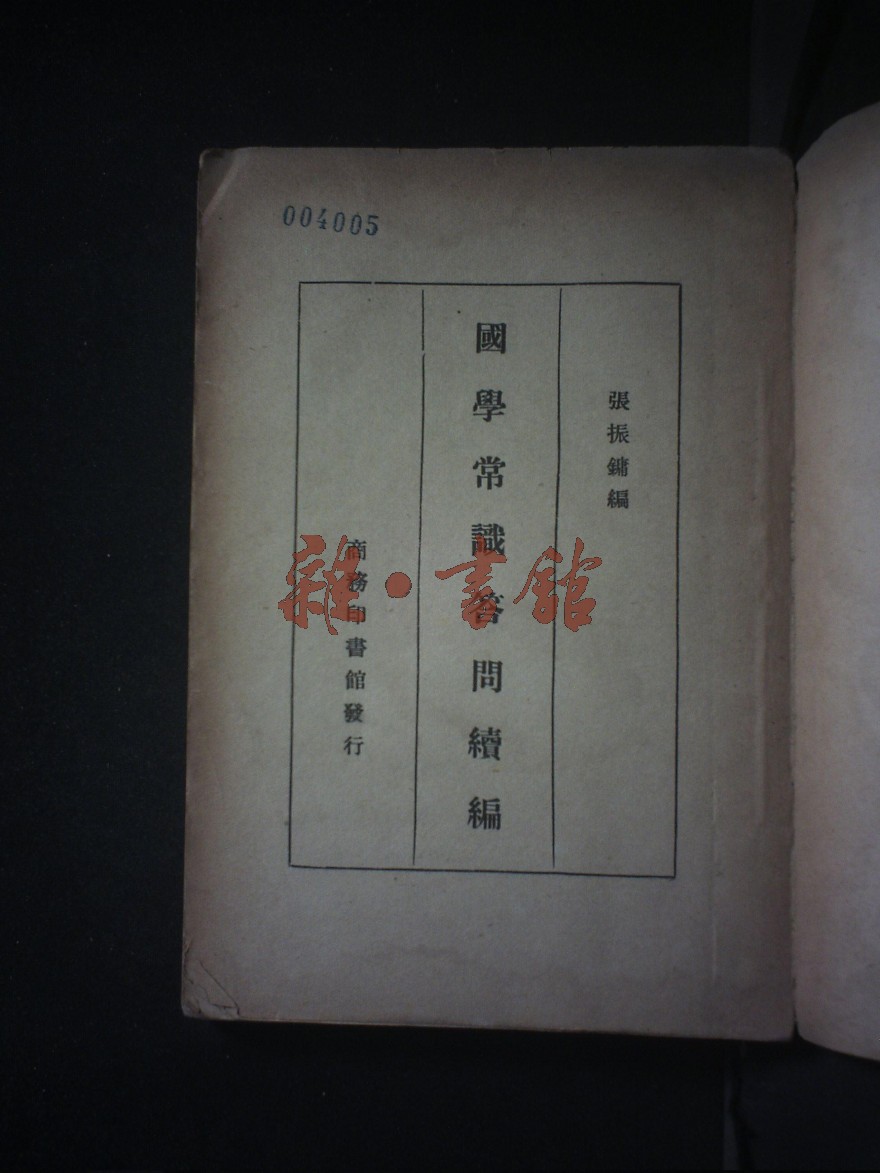 004005
張振鏞編
國學常識答問續編
商務印書館發行
雜·書館